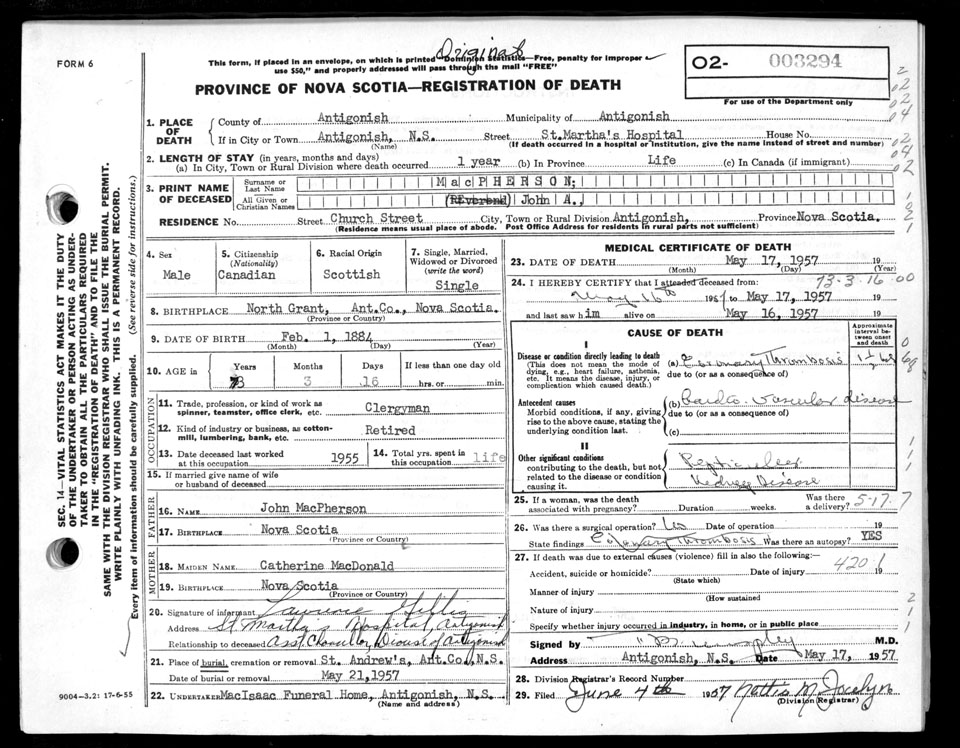 Original
FORM 6
This form, if placed in an envelope, on which is printed "Dominion Statistics—Free, penalty for improper
use $50," and properly addressed will pass through the mail "FREE"
O2- 003294
For use of the Department only
PROVINCE OF NOVA SCOTIA—REGISTRATION OF DEATH
1. PLACE OF DEATH
County of Antigonish Municipality of Antigonish
If in City or Town Antigonish, N.S. Street St.Martha's Hospital House No.
(Name) (If death occurred in a hospital or institution, give the name instead of street and number)
2. LENGTH OF STAY (in years, months and days)
(a) In City, Town or Rural Division where death occurred 1 year (b) In Province Life (c) In Canada (if immigrant)
3. PRINT NAME OF DECEASED
Surname or Last Name MacPHERSON;
All Given or Christian Names (Reverend) John A.,
RESIDENCE No. Street Church Street City, Town or Rural Division Antigonish, Province Nova Scotia.
(Residence means usual place of abode. Post Office Address for residents in rural parts not sufficient)
4. Sex Male
5. Citizenship (Nationality) Canadian
6. Racial Origin Scottish
7. Single, Married, Widowed or Divorced (write the word) Single
8. BIRTHPLACE North Grant, Ant.Co., Nova Scotia.
(Province or Country)
9. DATE OF BIRTH Feb. 1, 1884
(Month) (Day) (Year)
10. AGE in Years Months Days If less than one day old
73 3 16 hrs. or min.
OCCUPATION
11. Trade, profession, or kind of work as spinner, teamster, office clerk, etc. Clergyman
12. Kind of industry or business, as cotton-mill, lumbering, bank, etc. Retired
13. Date deceased last worked at this occupation 1955
14. Total yrs. spent in this occupation life
15. If married give name of wife or husband of deceased
FATHER
16. NAME John MacPherson
17. BIRTHPLACE Nova Scotia
(Province or Country)
MOTHER
18. MAIDEN NAME Catherine MacDonald
19. BIRTHPLACE Nova Scotia
(Province or Country)
20. Signature of informant Laurence Gillis
Address St Martha's Hospital, Antigonish
Relationship to deceased Asst Chancellor, Diocese of Antigonish
21. Place of burial, cremation or removal St. Andrew's, Ant.Co., N.S.
Date of burial or removal May 21,1957
22. UNDERTAKER MacIsaac Funeral Home, Antigonish, N.S.
(Name and address)
MEDICAL CERTIFICATE OF DEATH
23. DATE OF DEATH May 17, 1957 19
(Month) (Day) (Year)
24. I HEREBY CERTIFY that I attended deceased from: 73-3-16-00
May 16th 1957 to May 17, 1957 19
and last saw him alive on May 16, 1957 19
CAUSE OF DEATH
Approximate interval between onset and death
I
Disease or condition directly leading to death
(This does not mean the mode of dying, e.g., heart failure, asthenia, etc. It means the disease, injury, or complication which caused death.)
(a) Coronary Thrombosis
due to (or as a consequence of)
Antecedent causes
Morbid conditions, if any, giving rise to the above cause, stating the underlying condition last.
(b) Cardio-vascular disease
due to (or as a consequence of)
(c)
II
Other significant conditions
contributing to the death, but not related to the disease or condition causing it.
Peptic ulcer
Kidney Disease
25. If a woman, was the death associated with pregnancy? Duration weeks. Was there a delivery? 5-17-7
26. Was there a surgical operation? Date of operation 19
State findings Coronary Thrombosis Was there an autopsy? YES
27. If death was due to external causes (violence) fill in also the following:—
Accident, suicide or homicide? Date of injury 19
420.1
(State which)
Manner of injury
(How sustained)
Nature of injury
Specify whether injury occurred in industry, in home, or in public place
Signed by M.D.
Address Antigonish, N.S. Date May 17, 1957
28. Division Registrar's Record Number
29. Filed June 4th 1957 Nattie M. Jocelyn
(Division Registrar)
SEC. 14—VITAL STATISTICS ACT MAKES IT THE DUTY
OF THE UNDERTAKER OR PERSON ACTING AS UNDER-
TAKER TO OBTAIN ALL THE PARTICULARS REQUIRED
IN THE "REGISTRATION OF DEATH" AND TO FILE THE
SAME WITH THE DIVISION REGISTRAR WHO SHALL ISSUE THE BURIAL PERMIT.
WRITE PLAINLY WITH UNFADING INK. THIS IS A PERMANENT RECORD.
Every item of information should be carefully supplied. (See reverse side for instructions.)
9004-3.21: 17-6-55